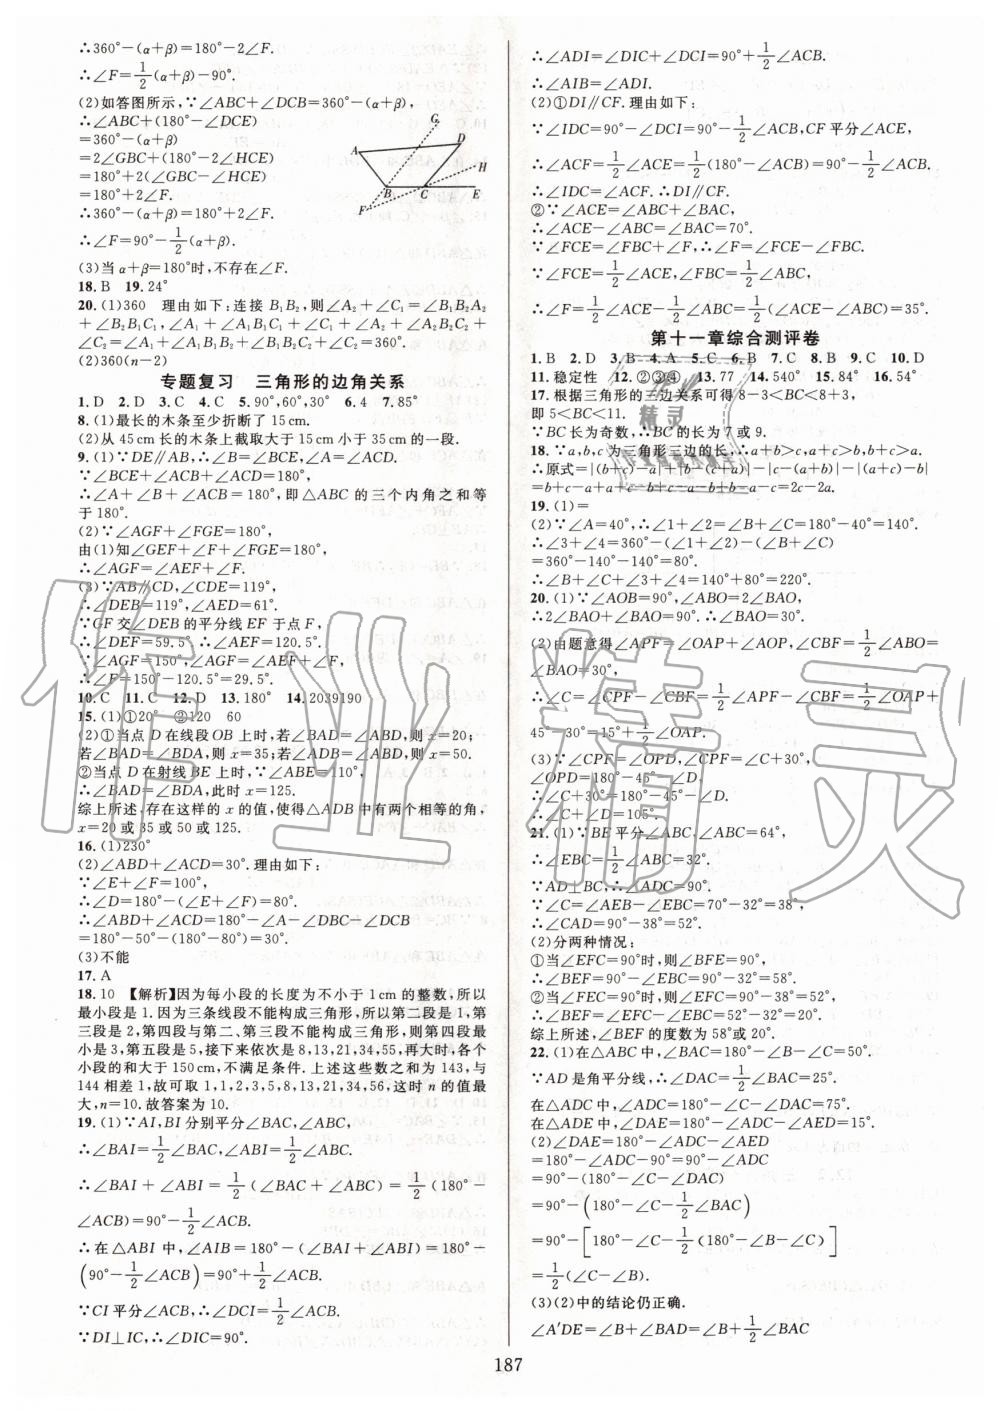 ∴360°−(α+β)=180°−2∠F.
∴∠F=1/2(α+β)−90°.
(2)如答图所示,∵∠ABC+∠DCB=360°−(α+β),
∴∠ABC+(180°−∠DCE)
=360°−(α+β)
=2∠GBC+(180°−2∠HCE)
=180°+2(∠GBC−∠HCE)
=180°+2∠F.
∴360°−(α+β)=180°+2∠F.
∴∠F=90°−1/2(α+β).
G
A
D
H
B
C
E
F
(3)当α+β=180°时,不存在∠F.
18.B 19.24°
20.(1)360 理由如下:连接B₁B₂,则∠A₂+∠C₁=∠B₁B₂A₂
+∠B₂B₁C₁,∴∠A₁+∠B₁+∠C₁+∠A₂+∠A₂B₂C₂+
∠C₂=∠A₁+∠A₁B₁B₂+∠B₁B₂C₂+∠C₂=360°.
(2)360(n−2)
专题复习 三角形的边角关系
1.D 2.D 3.C 4.C 5.90°,60°,30° 6.4 7.85°
8.(1)最长的木条至少折断了15cm.
(2)从45cm长的木条上截取大于15cm小于35cm的一段.
9.(1)∵DE∥AB,∴∠B=∠BCE,∠A=∠ACD.
∵∠BCE+∠ACB+∠ACD=180°,
∴∠A+∠B+∠ACB=180°,即△ABC的三个内角之和等
于180°.
(2)∵∠AGF+∠FGE=180°,
由(1)知∠GEF+∠F+∠FGE=180°,
∴∠AGF=∠AEF+∠F.
(3)∵AB∥CD,∠CDE=119°,
∴∠DEB=119°,∠AED=61°.
∵GF交∠DEB的平分线EF于点F,
∴∠DEF=59.5°.∴∠AEF=120.5°.
∵∠AGF=150°,∠AGF=∠AEF+∠F,
∴∠F=150°−120.5°=29.5°.
10.C 11.C 12.D 13.180° 14.2039190
15.(1)①20° ②120 60
(2)①当点D在线段OB上时,若∠BAD=∠ABD,则x=20;
若∠BAD=∠BDA,则x=35;若∠ADB=∠ABD,则x=50.
②当点D在射线BE上时,∵∠ABE=110°,
∴∠BAD=∠BDA,此时x=125.
综上所述,存在这样的x的值,使得△ADB中有两个相等的角,
x=20或35或50或125.
16.(1)230°
(2)∠ABD+∠ACD=30°.理由如下:
∵∠E+∠F=100°,
∴∠D=180°−(∠E+∠F)=80°.
∴∠ABD+∠ACD=180°−∠A−∠DBC−∠DCB
=180°−50°−(180°−80°)=30°.
(3)不能
17.A
18.10 【解析】因为每小段的长度为不小于1cm的整数,所以
最小段是1.因为三条线段不能构成三角形,所以第二段是1,第
三段是2,第四段与第二、第三段不能构成三角形,则第四段最
小是3,第五段是5,接下来依次是8,13,21,34,55,再大时,各个
小段的和大于150cm,不满足条件.上述这些数之和为143,与
144相差1,故可取1,1,2,3,5,8,13,21,34,56,这时n的值最
大,n=10.故答案为10.
19.(1)∵AI,BI分别平分∠BAC,∠ABC,
∴∠BAI=1/2∠BAC,∠ABI=1/2∠ABC.
∴∠BAI+∠ABI=1/2(∠BAC+∠ABC)=1/2(180°−
∠ACB)=90°−1/2∠ACB.
∴在△ABI中,∠AIB=180°−(∠BAI+∠ABI)=180°−
(90°−1/2∠ACB)=90°+1/2∠ACB.
∵CI平分∠ACB,∴∠DCI=1/2∠ACB.
∵DI⊥IC,∴∠DIC=90°.
∴∠ADI=∠DIC+∠DCI=90°+1/2∠ACB.
∴∠AIB=∠ADI.
(2)①DI∥CF.理由如下:
∵∠IDC=90°−∠DCI=90°−1/2∠ACB,CF平分∠ACE,
∴∠ACF=1/2∠ACE=1/2(180°−∠ACB)=90°−1/2∠ACB.
∴∠IDC=∠ACF.∴DI∥CF.
②∵∠ACE=∠ABC+∠BAC,
∴∠ACE−∠ABC=∠BAC=70°.
∵∠FCE=∠FBC+∠F,∴∠F=∠FCE−∠FBC.
∵∠FCE=1/2∠ACE,∠FBC=1/2∠ABC,
∴∠F=1/2∠ACE−1/2∠ABC=1/2(∠ACE−∠ABC)=35°.
第十一章综合测评卷
1.B 2.D 3.B 4.A 5.C 6.B 7.C 8.B 9.C 10.D
11.稳定性 12.②③④ 13.77 14.540° 15.84° 16.54°
17.根据三角形的三边关系可得8−3<BC<8+3,
即5<BC<11.
∵BC长为奇数,∴BC的长为7或9.
18.∵a,b,c为三角形三边的长,∴a+b>c,a+c>b,b+c>a.
∴原式=|(b+c)−a|+|b−(c+a)|−|c−(a+b)|−|(a+c)−b|
=b+c−a+a+c−b+c−a−b+b−a−c=2c−2a.
19.(1)=
(2)∵∠A=40°,∴∠1+∠2=∠B+∠C=180°−40°=140°.
∴∠3+∠4=360°−(∠1+∠2)−(∠B+∠C)
=360°−140°−140°=80°.
∴∠B+∠C+∠1+∠2+∠3+∠4=360°.
20.(1)∵∠AOB=90°,∠ABO=2∠BAO,
∴2∠BAO+∠BAO=90°.∴∠BAO=30°.
(2)由题意得∠APF=∠OAP+∠AOP,∠CBF=1/2∠ABO=
∠BAO=30°,
∴∠C=∠CPF−∠CBF=1/2∠APF−∠CBF=1/2∠OAP+
45°−30°=15°+1/2∠OAP.
(3)∵∠CPF=∠OPD,∠CPF=∠C+30°,
∠OPD=180°−45°−∠D,
∴∠C+30°=180°−45°−∠D.
∴∠C+∠D=105°.
21.(1)∵BE平分∠ABC,∠ABC=64°,
∴∠EBC=1/2∠ABC=32°.
∵AD⊥BC,∴∠ADC=90°.
∵∠C=∠AEB−∠EBC=70°−32°=38°,
∴∠CAD=90°−38°=52°.
(2)分两种情况:
①当∠EFC=90°时,则∠BFE=90°,
∴∠BEF=90°−∠EBC=90°−32°=58°;
②当∠FEC=90°时,则∠EFC=90°−38°=52°,
∴∠BEF=∠EFC−∠EBC=52°−32°=20°.
综上所述,∠BEF的度数为58°或20°.
22.(1)在△ABC中,∠BAC=180°−∠B−∠C=50°.
∵AD是角平分线,∴∠DAC=1/2∠BAC=25°.
在△ADC中,∠ADC=180°−∠C−∠DAC=75°.
在△ADE中,∠DAE=180°−∠ADC−∠AED=15°.
(2)∠DAE=180°−∠ADC−∠AED
=180°−∠ADC−90°=90°−∠ADC
=90°−(180°−∠C−∠DAC)
=90°−(180°−∠C−1/2∠BAC)
=90°−[180°−∠C−1/2(180°−∠B−∠C)]
=1/2(∠C−∠B).
(3)(2)中的结论仍正确.
∠A′DE=∠B+∠BAD=∠B+1/2∠BAC
187
作业精灵